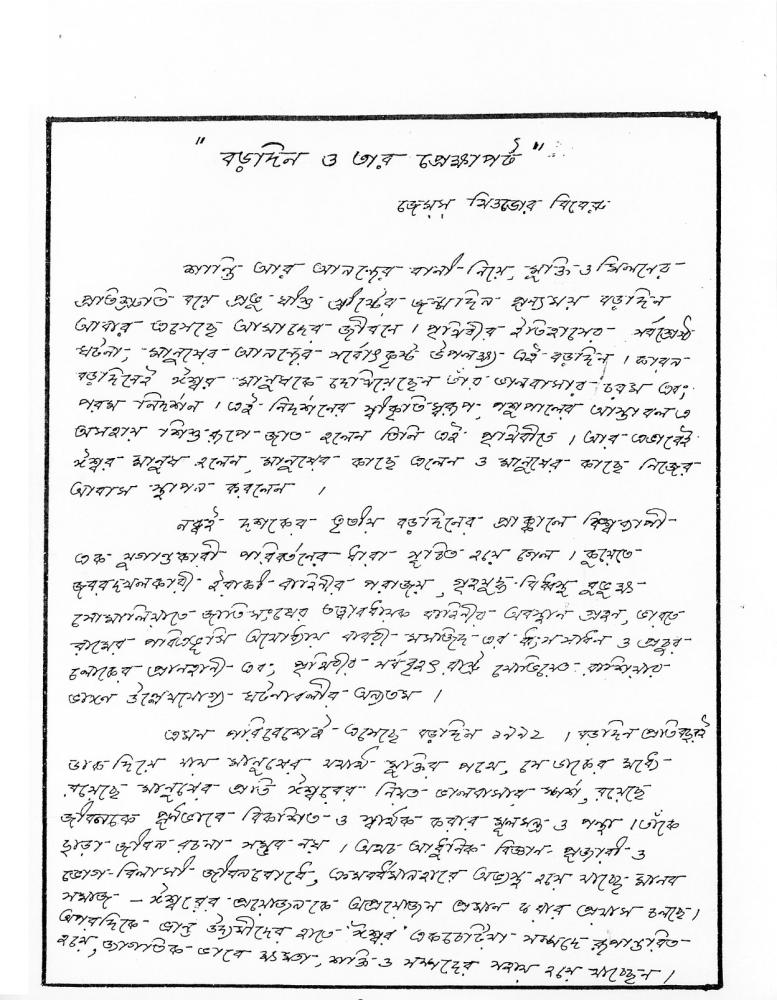 " বড়দিন ও তার প্রেক্ষাপট "
জেমস্ বিবেক
শান্তি আর আনন্দের বানী নিয়ে, মুক্তি ও মিলনের
প্রতিশ্রুতি বয়ে প্রভু যীশু খ্রীষ্টের জন্মদিন পূন্যময় বড়দিন
আবার এসেছে আমাদের জীবনে । পৃথিবীর ইতিহাসের সর্বশ্রেষ্ঠ
ঘটনা, মানুষের আনন্দের সর্বোৎকৃষ্ট উপলক্ষ্য এই বড়দিন । কারন
বড়দিনেই ঈশ্বর মানুষকে দেখিয়েছেন তাঁর ভালবাসার চরম এবং
পরম নিদর্শন । এই নিদর্শনের স্বীকৃতি স্বরূপ, পশুপালের আস্তাবলে
অসহায় শিশুরূপে জাত হলেন তিনি এই পৃথিবীতে । আর এভাবেই
ঈশ্বর মানুষ হলেন, মানুষের কাছে এলেন ও মানুষের কাছে নিজের
আবাস স্থাপন করলেন ।
নব্বই দশকের তৃতীয় বড়দিনের প্রাক্কালে বিশ্বব্যাপী
এক যুগান্তকারী পরিবর্তনের ধারা সূচিত হয়ে গেল । কুয়েতে
জবরদখলকারী ইরাকী বাহিনীর পরাজয়, গৃহযুদ্ধে বিধ্বস্ত বুভুক্ষ
সোমালিয়াতে জাতিসংঘের তত্ত্বাবধায়ক বাহিনীর অবস্থান গ্রহন, ভারতে
রামের পবিত্রভূমি অযোধ্যায় বাবরী মসজিদ এর ধ্বংসসাধন ও প্রচুর
লোকের প্রানহানী এবং পৃথিবীর সর্ববৃহৎ রাষ্ট্র সোভিয়েত রাশিয়ার
ভাঙ্গন উল্লেখযোগ্য ঘটনাবলীর অন্যতম ।
এমন পরিবেশেই এসেছে বড়দিন ১৯৯২ । বড়দিন প্রতিবছরই
ডাক দিয়ে যায় মানুষের যথার্থ মুক্তির পথে, সে ডাকের মধ্যে
রয়েছে মানুষের প্রতি ঈশ্বরের নিয়ত ভালবাসার স্পর্শ, রয়েছে
জীবনকে পূর্নভাবে বিকশিত ও স্বার্থক করার মূলমন্ত্র ও পন্থা । তাঁকে
ছাড়া জীবন রচনা সম্ভব নয় । অথচ আধুনিক বিজ্ঞান পূজারী ও
ভোগ-বিলাসী জীবনবোধে, ক্রমবর্ধমানহারে অভ্যস্থ হয়ে যাচ্ছে মানব
সমাজ – ঈশ্বরের প্রয়োজনকে অপ্রয়োজন প্রমান করার প্রয়াস চলছে ।
অপরদিকে ভ্রান্ত উদ্যমীদের হাতে 'ঈশ্বর' একচেটিয়া সম্পদে রূপান্তরিত
হয়ে, জাগতিক ভাবে ক্ষমতা, শক্তি ও সম্পদের সহায় হয়ে যাচ্ছেন ।